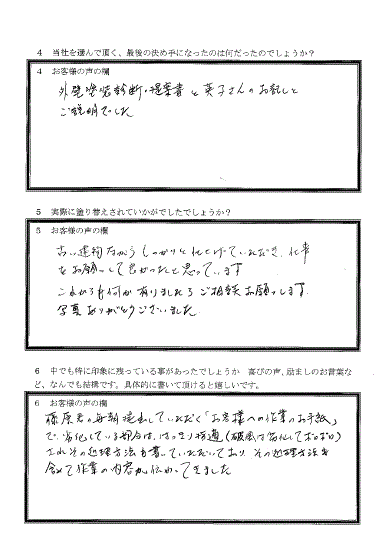 4 当社を選んで頂く、最後の決め手になったのは何だったのでしょうか?
4 お客様の声の欄
外壁塗装診断・提案書と英子さんのお話しと
ご説明でした
5 実際に塗り替えされていかがでしたでしょうか?
5 お客様の声の欄
古い建物ながらしっかりと仕上げていただき、仕事
をお願いして良かったと思っています
これからも何か有りましたらご相談お願いします
写真ありがとうございました
6 中でも特に印象に残っている事があったでしょうか 喜びの声、励ましのお言葉な
ど、なんでも結構です。具体的に書いて頂けると嬉しいです。
6 お客様の声の欄
藤原君の毎朝提出していただく「お客様への作業のお手紙」
で、劣化している部分は、はっきり指適(破風は劣化してボロボロ)
され その処理方法も書いていただいており、その処理方法を
含めて作業の内容が伝わってきました